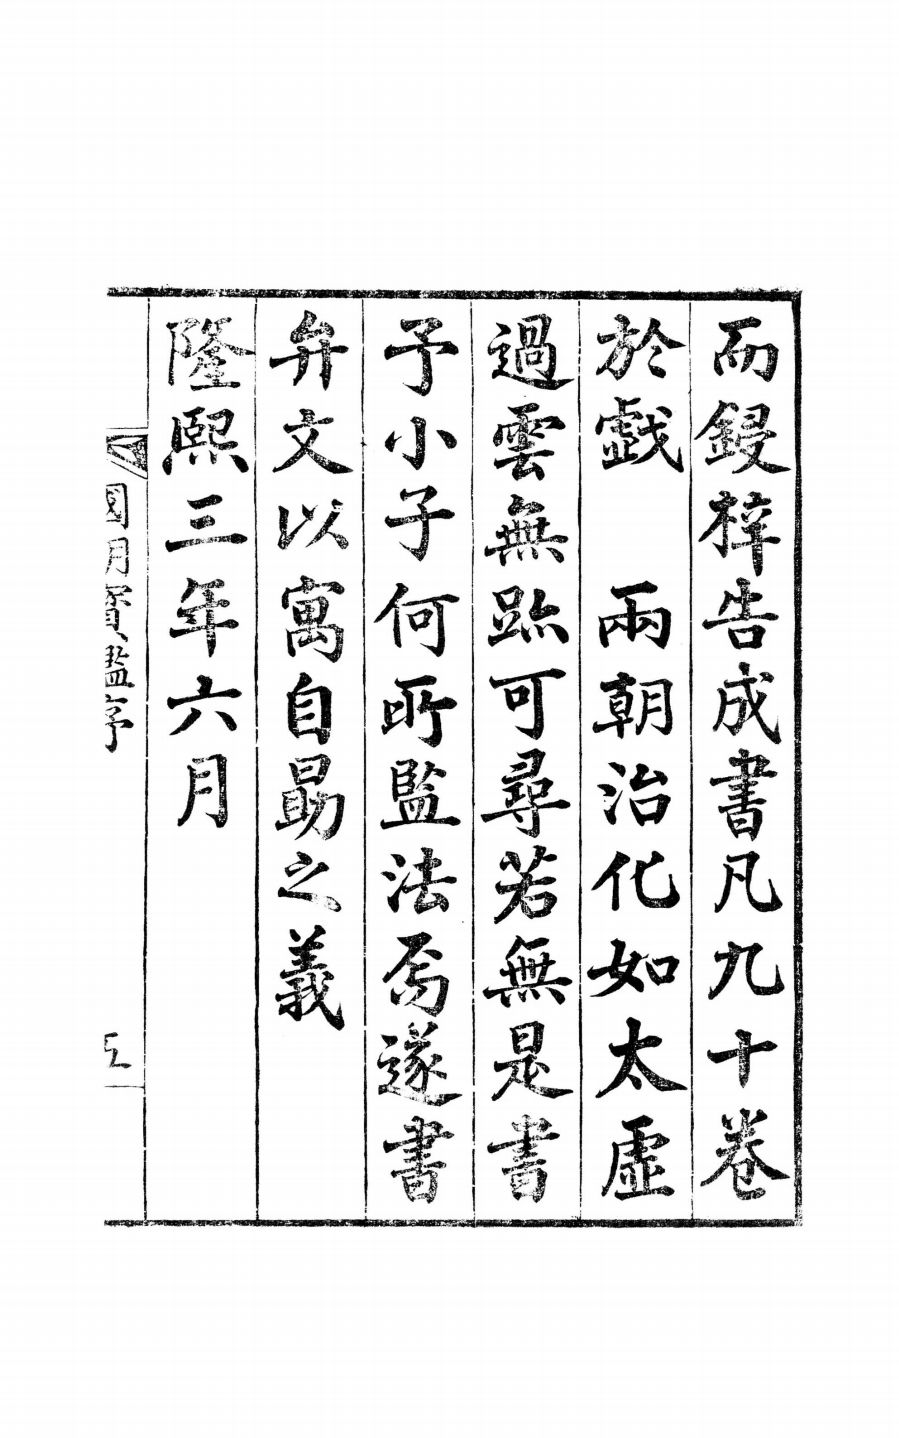 而鋟梓告成書凡九十卷
於戲　兩朝治化如太虛
過雲無跡可尋若無是書
予小子何所監法焉遂書
弁文以寓自勗之義
隆熙三年六月
國朝寶鑑序
五